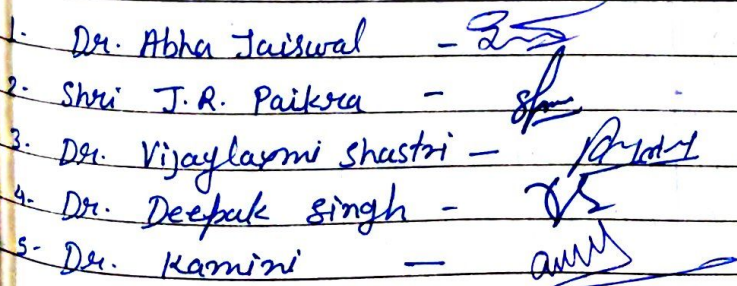 1. Dr. Abha Jaiswal -
2. Shri J.R. Paikra -
3. Dr. Vijaylaxmi Shastri -
4- Dr. Deepak Singh -
5- Dr. Kamini -